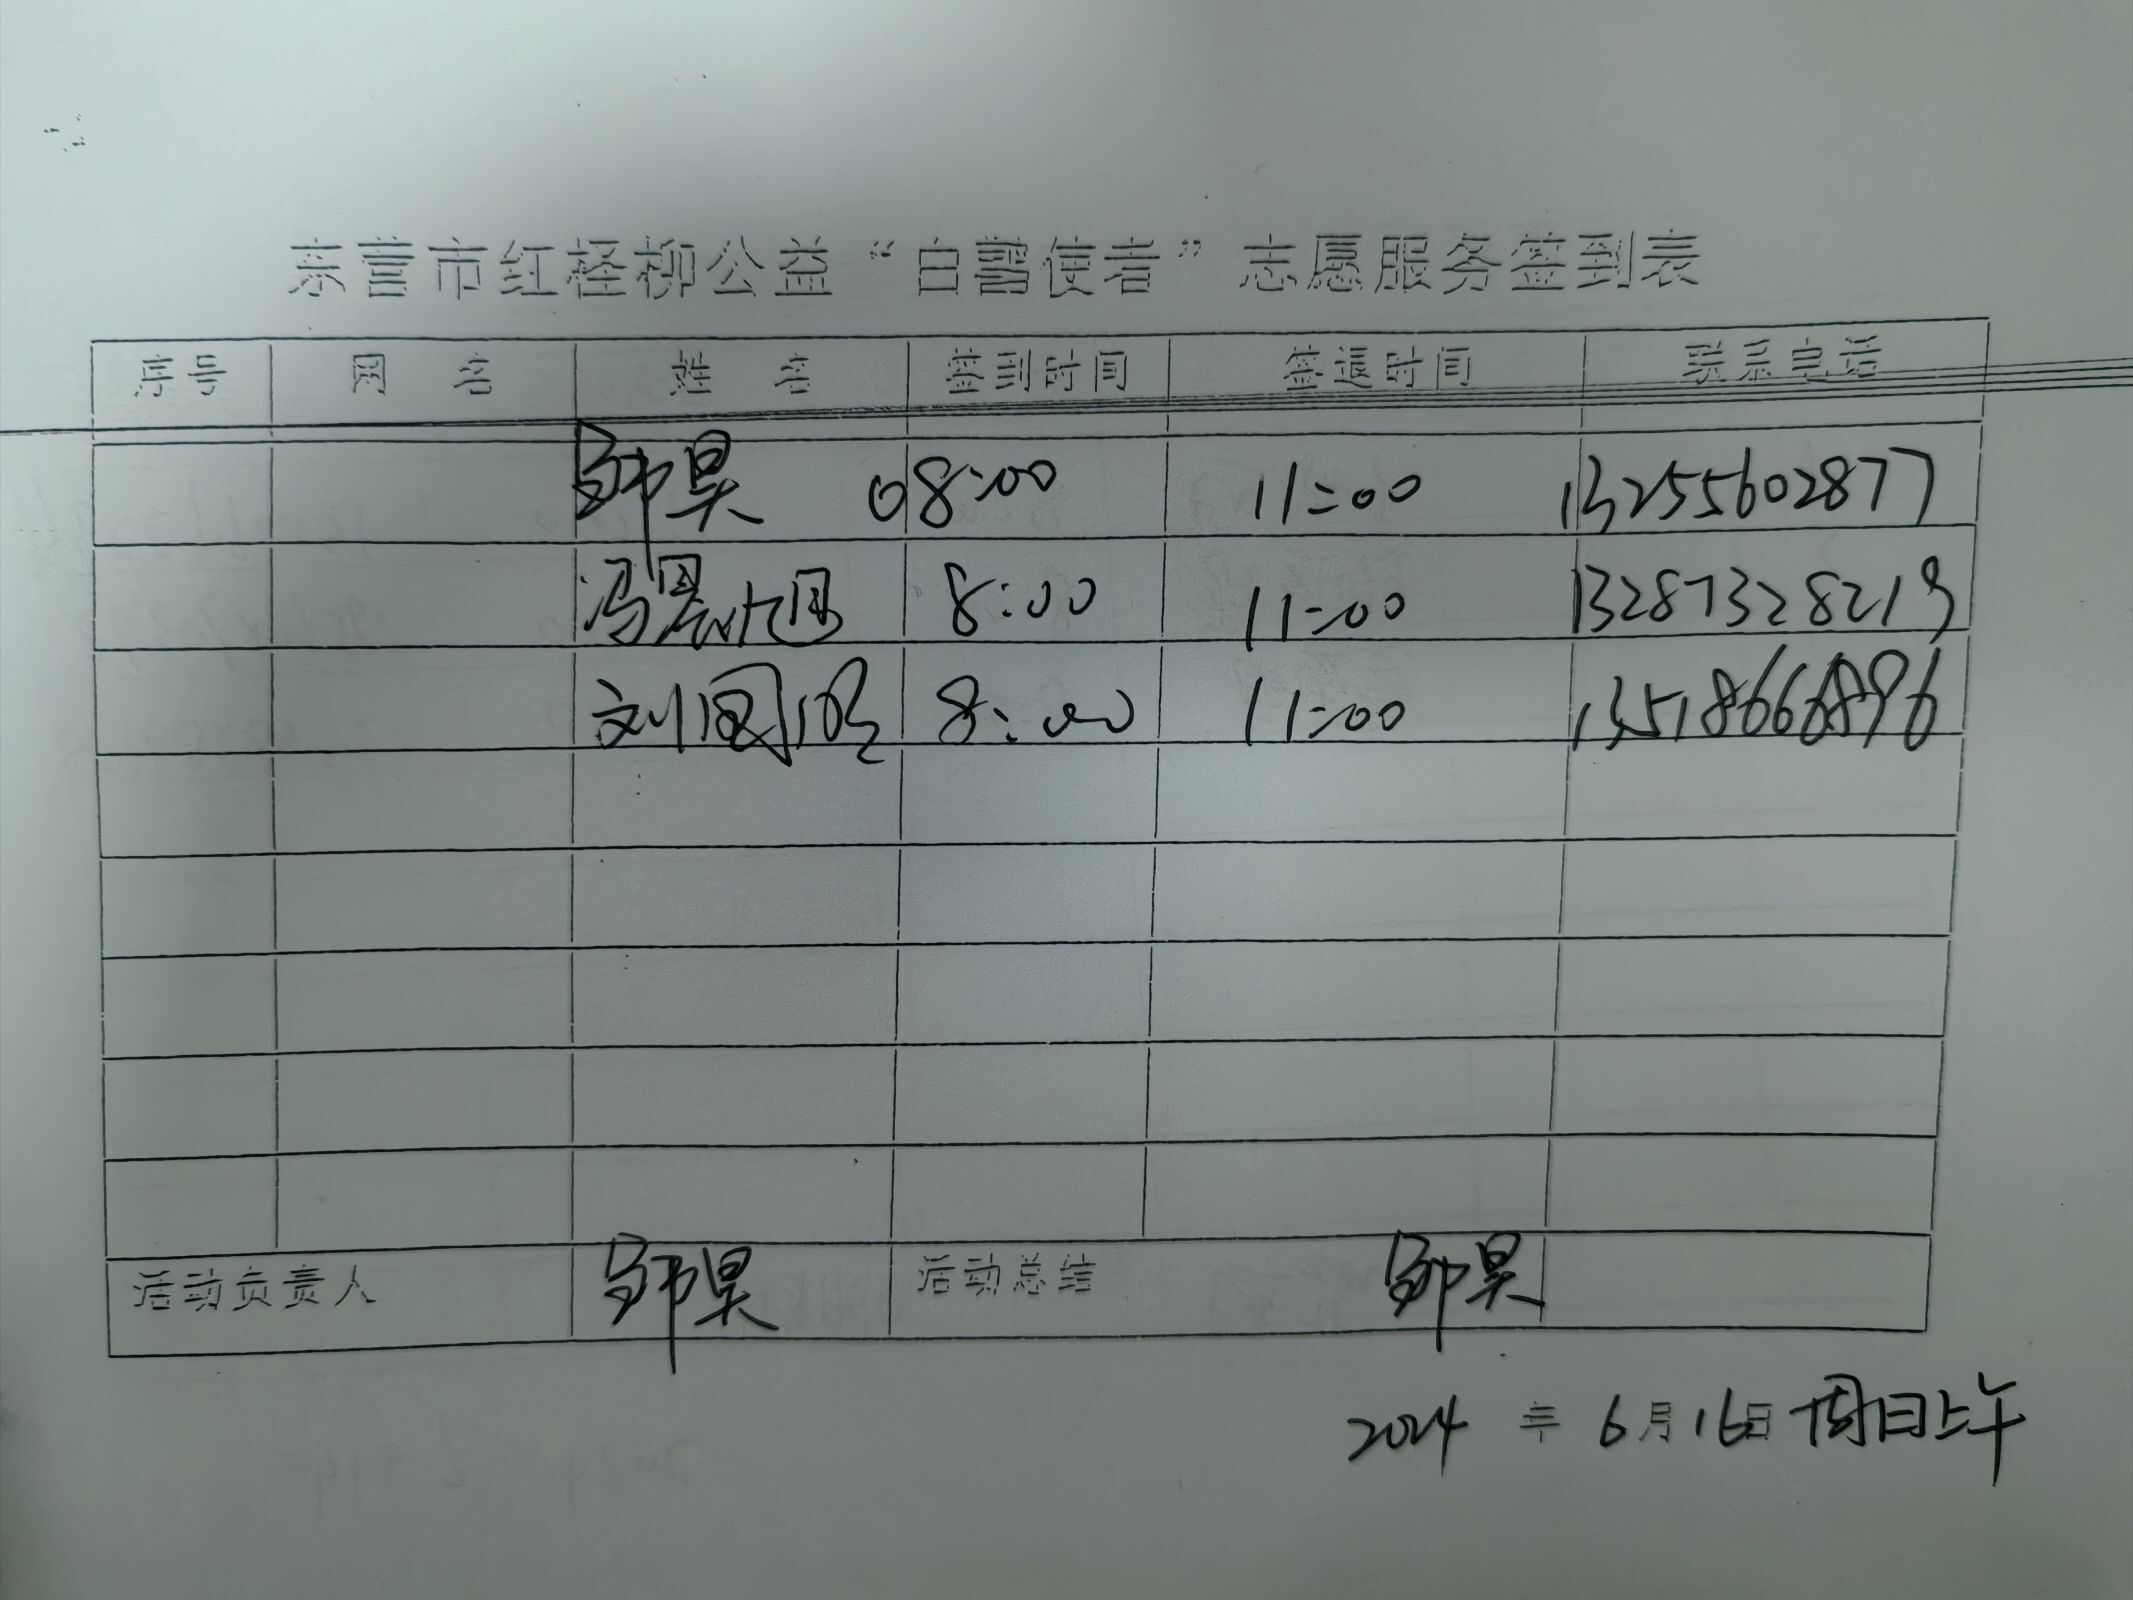 东营市红柽柳公益“白鹭使者”志愿服务签到表
序号 网 名 姓 名 签到时间 签退时间 联系电话
邹昊 08:00 11:00 13255602877
冯晨旭 8:00 11:00 13287328219
刘 8:00 11:00 13518666896
活动负责人 邹昊 活动总结 邹昊
2024 年 6月16日 周日上午